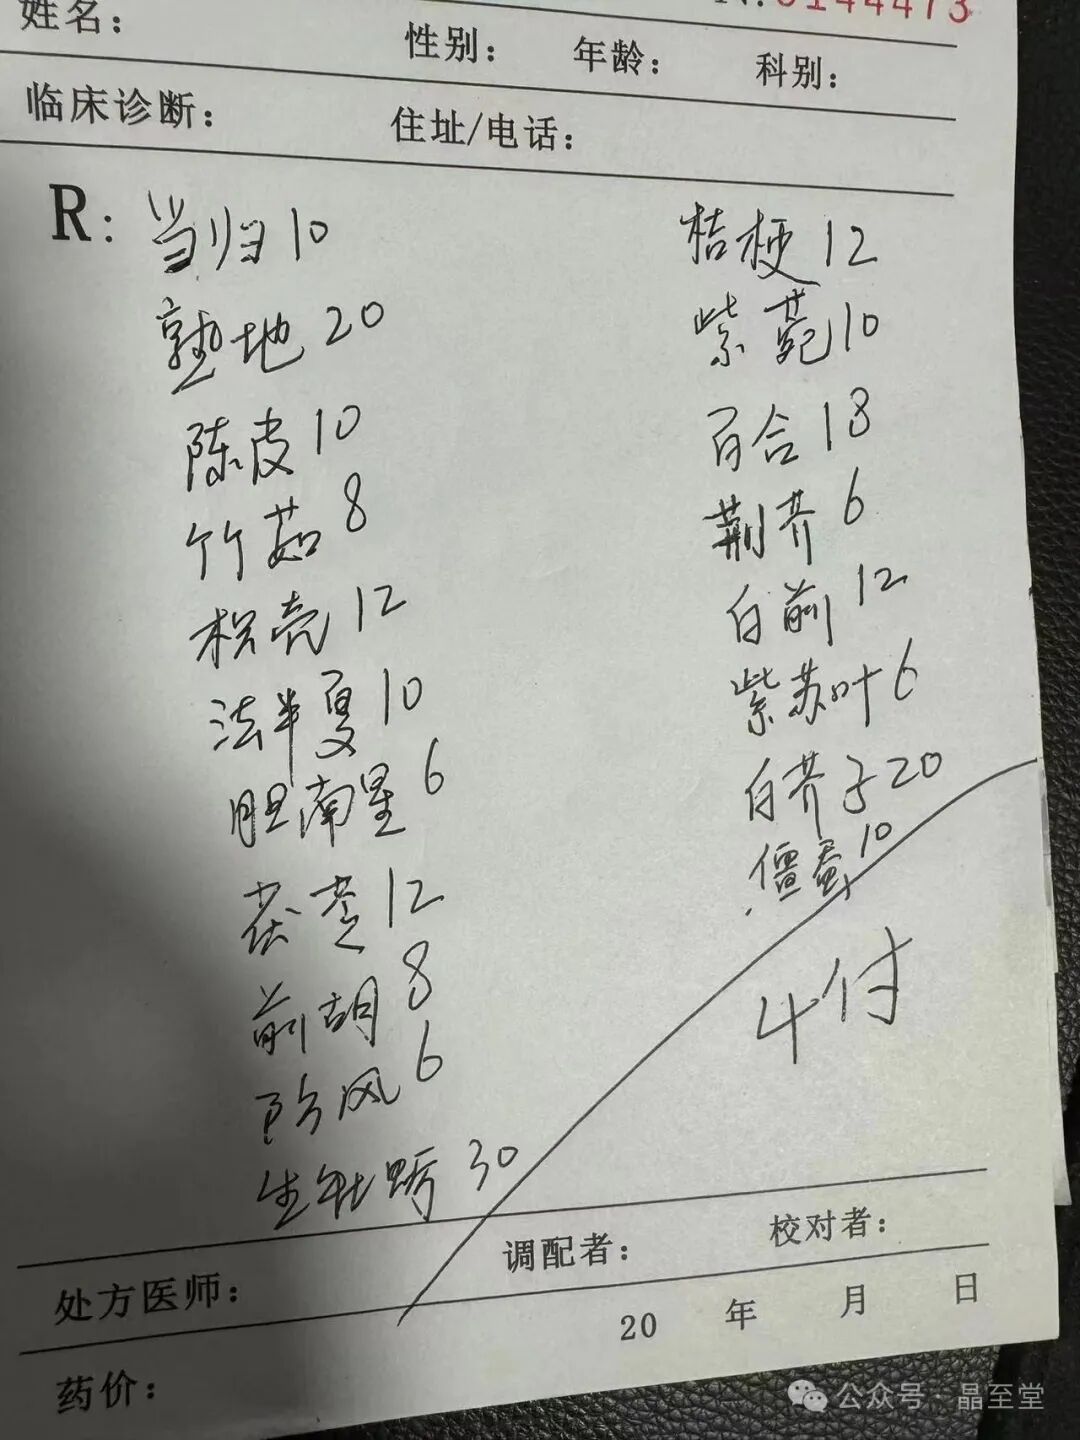 N:0144473
姓名：
性别： 年龄： 科别：
临床诊断： 住址/电话：
R: 当归10
熟地20
陈皮10
竹茹8
枳壳12
法半夏10
胆南星6
茯苓12
前胡8
防风6
生牡蛎30
桔梗12
紫菀10
百合18
荆芥6
白前12
紫苏叶6
白芥子20
僵蚕10
4付
处方医师： 调配者： 校对者：
20 年 月 日
药价：
公众号·晶至堂